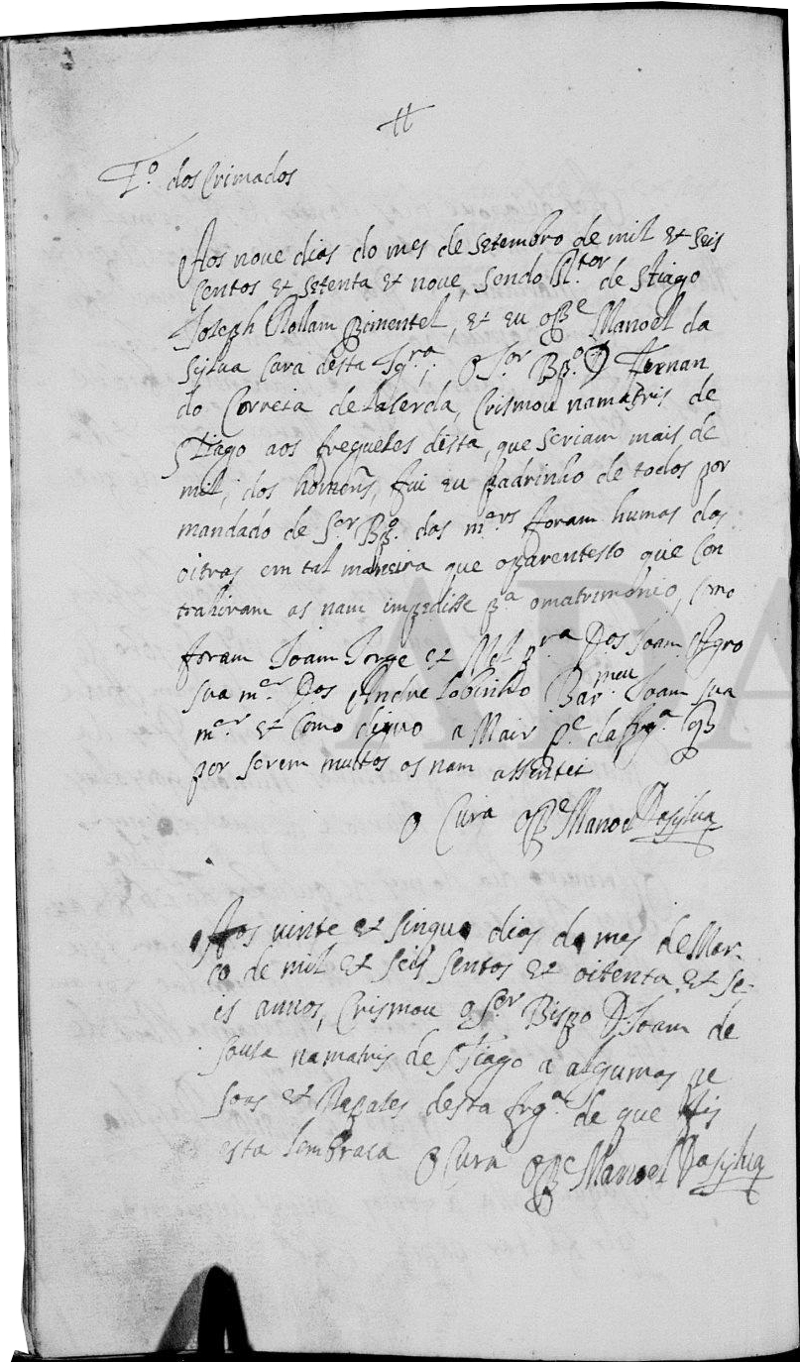 tt
Tº dos Crimados
Aos noue dias do mes de setembro de mil et seis
sentos et setenta et noue, sendo Rtor de Stiago
Joseph Rollam Pimentel, et eu oPe Manoel da
Sylua Cura desta fgra, o Sor Bpo D Fernan
do Correia de Laserda, Crismou namatris de
STiago aos fregueses desta, que seriam mais de
mil, dos homens, fui eu padrinho de todos por
mandado de Sor Bpo. das mers foram humas das
oitras em tal maneira que oparentesco que Con
trahiram as nam impedisse pa omatrimonio, Como
foram Joam Jorge et Mel pra Dos Joam
sua mer Dos Andre Bar meu Joam sua
mer et Como diguo a Mair pe da frga
por serem muitos os nam assentei
O Cura oPe Manoel Dasylua
Aos uinte et singuo dias do mes deMar-
ço de mil et seis sentos et oitenta et se-
is annos, Crismou o Ser Bispo D. Joam de
Sousa namatris de STiago a algumas pe
soas et Rapases desta frga de que fis
esta lembraca O Cura oPe Manoel Dasylua
ADA